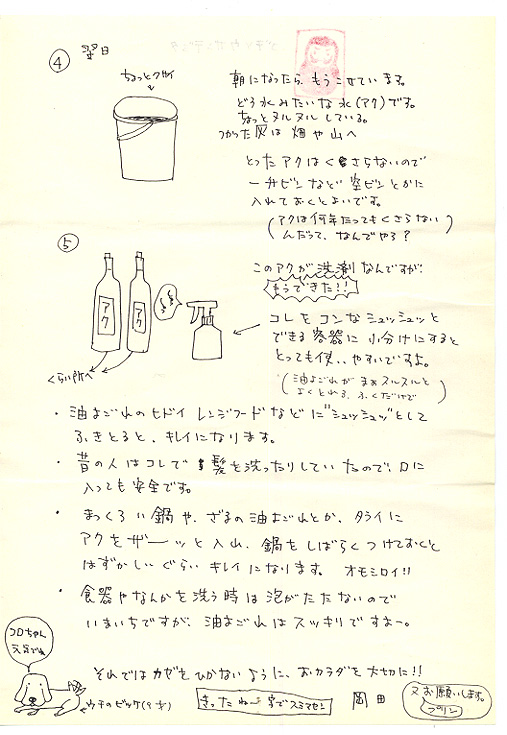 ④ 翌日
ちょっとグレイ
朝になったら、もうこせています。
どろ水みたいな水(アク)です。
ちょっとヌルヌルしている。
つかった灰は畑や山へ
とったアクはくさらないので
一升ビンなど空ビンとかに
入れておくとよいです。
(アクは何年たってもくさらない
んだって、なんでやろ?)
⑤
アク
アク
くらい所へ
このアクが洗剤なんですが、
もうできた!!
コレをコンなシュッシュッと
できる容器に小分けにすると
とっても使いやすいですよ。
(油よごれがまぁスルスルと
よくとれる、ふくだけで)
・油よごれのヒドイレンジフードなどに"シュッシュッ"として
ふきとると、キレイになります。
・昔の人はコレで髪を洗ったりしていたので、口に
入っても安全です。
・まっくろい鍋や、ざるの油よごれとか、タライに
アクをザーッと入れ、鍋をしばらくつけておくと
はずかしいぐらいキレイになります。オモシロイ!!
・食器やなんかを洗う時は泡がたたないので
いまいちですが、油よごれはスッキリですよー。
コロちゃん
元気でね
それではカゼをひかないように、おカラダを大切に!!
ウチのビッケ(9才)
きったねー字でスミマセン
岡田
又お願いします。
プリン